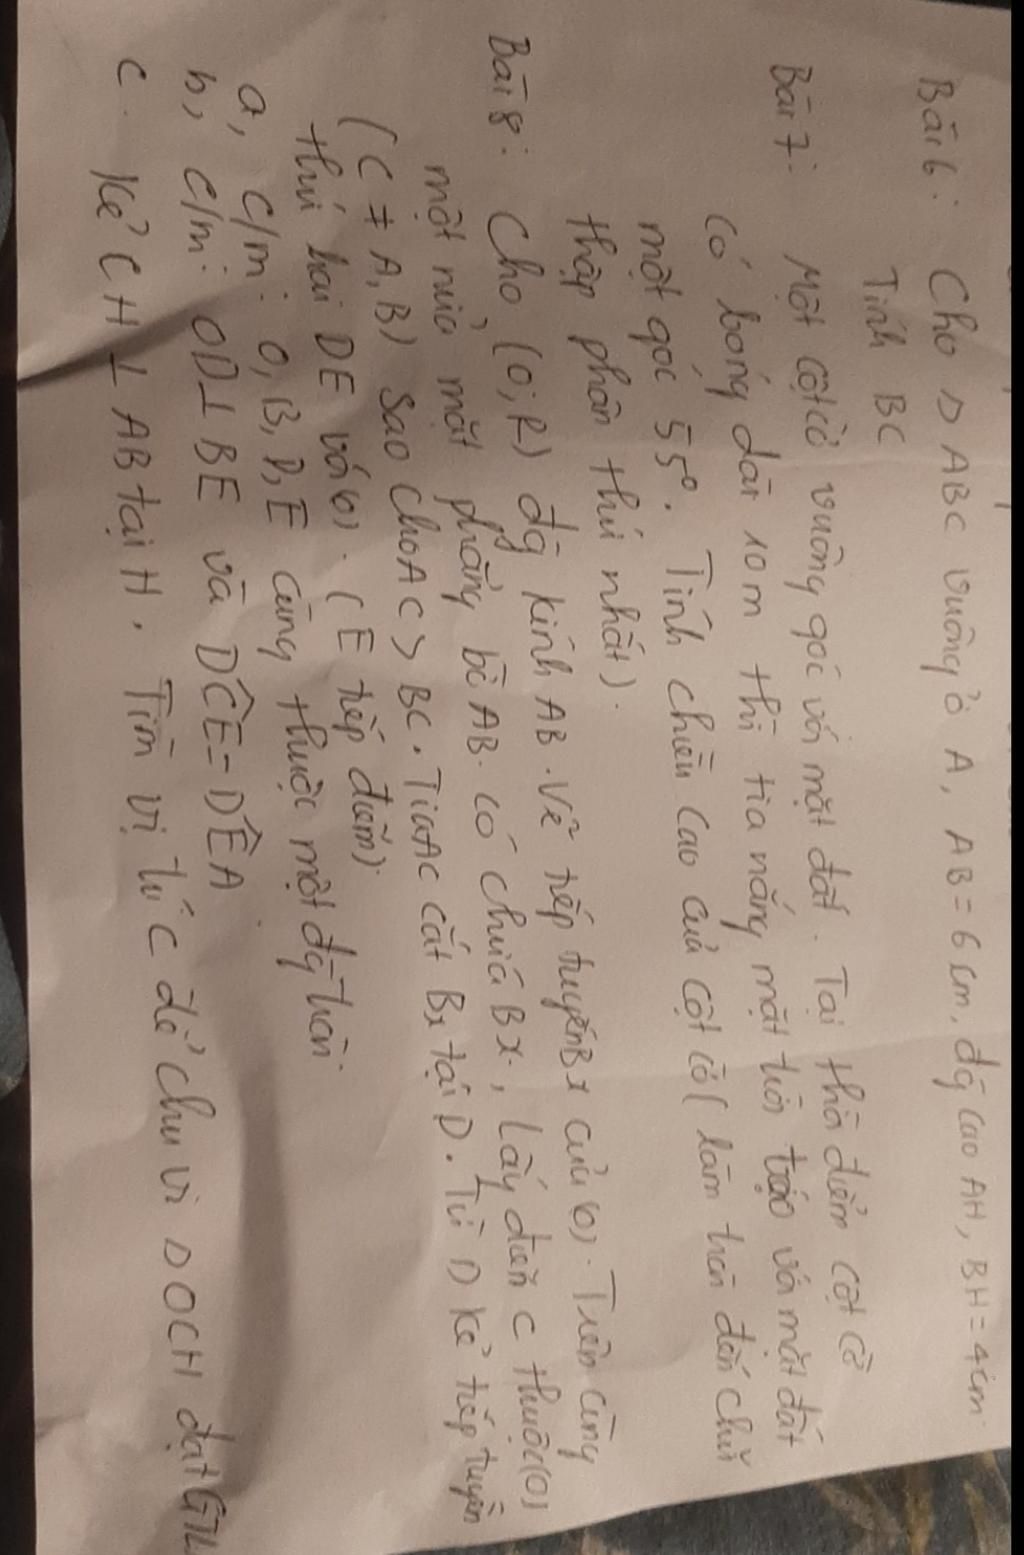 Bài 6: Cho Δ ABC vuông ở A, AB = 6 cm, đg cao AH, BH = 4cm.
Tính BC
Bài 7: Một cột cờ vuông góc với mặt đất. Tại thời điểm cột cờ
có bóng dài 10 m thì tia nắng mặt trời tạo với mặt đất
một góc 55°. Tính chiều cao của cột cờ ( làm tròn đến chữ
thập phân thứ nhất).
Bài 8: Cho (O; R) đg kính AB. Vẽ tiếp tuyến Bx của (O). Trên cùng
một nửa mặt phẳng bờ AB. có chứa Bx, lấy điểm C thuộc (O)
( C ≠ A, B) sao cho AC > BC. Tia AC cắt Bx tại D. Từ D kẻ tiếp tuyến
thứ hai DE với (O). ( E tiếp điểm).
a, C/m: O, B, D, E cùng thuộc một đg tròn.
b, C/m: OD ⊥ BE và DĈE = DÊA
c. Kẻ CH ⊥ AB tại H. Tìm vị trí C để chu vi Δ OCH đạt GTL